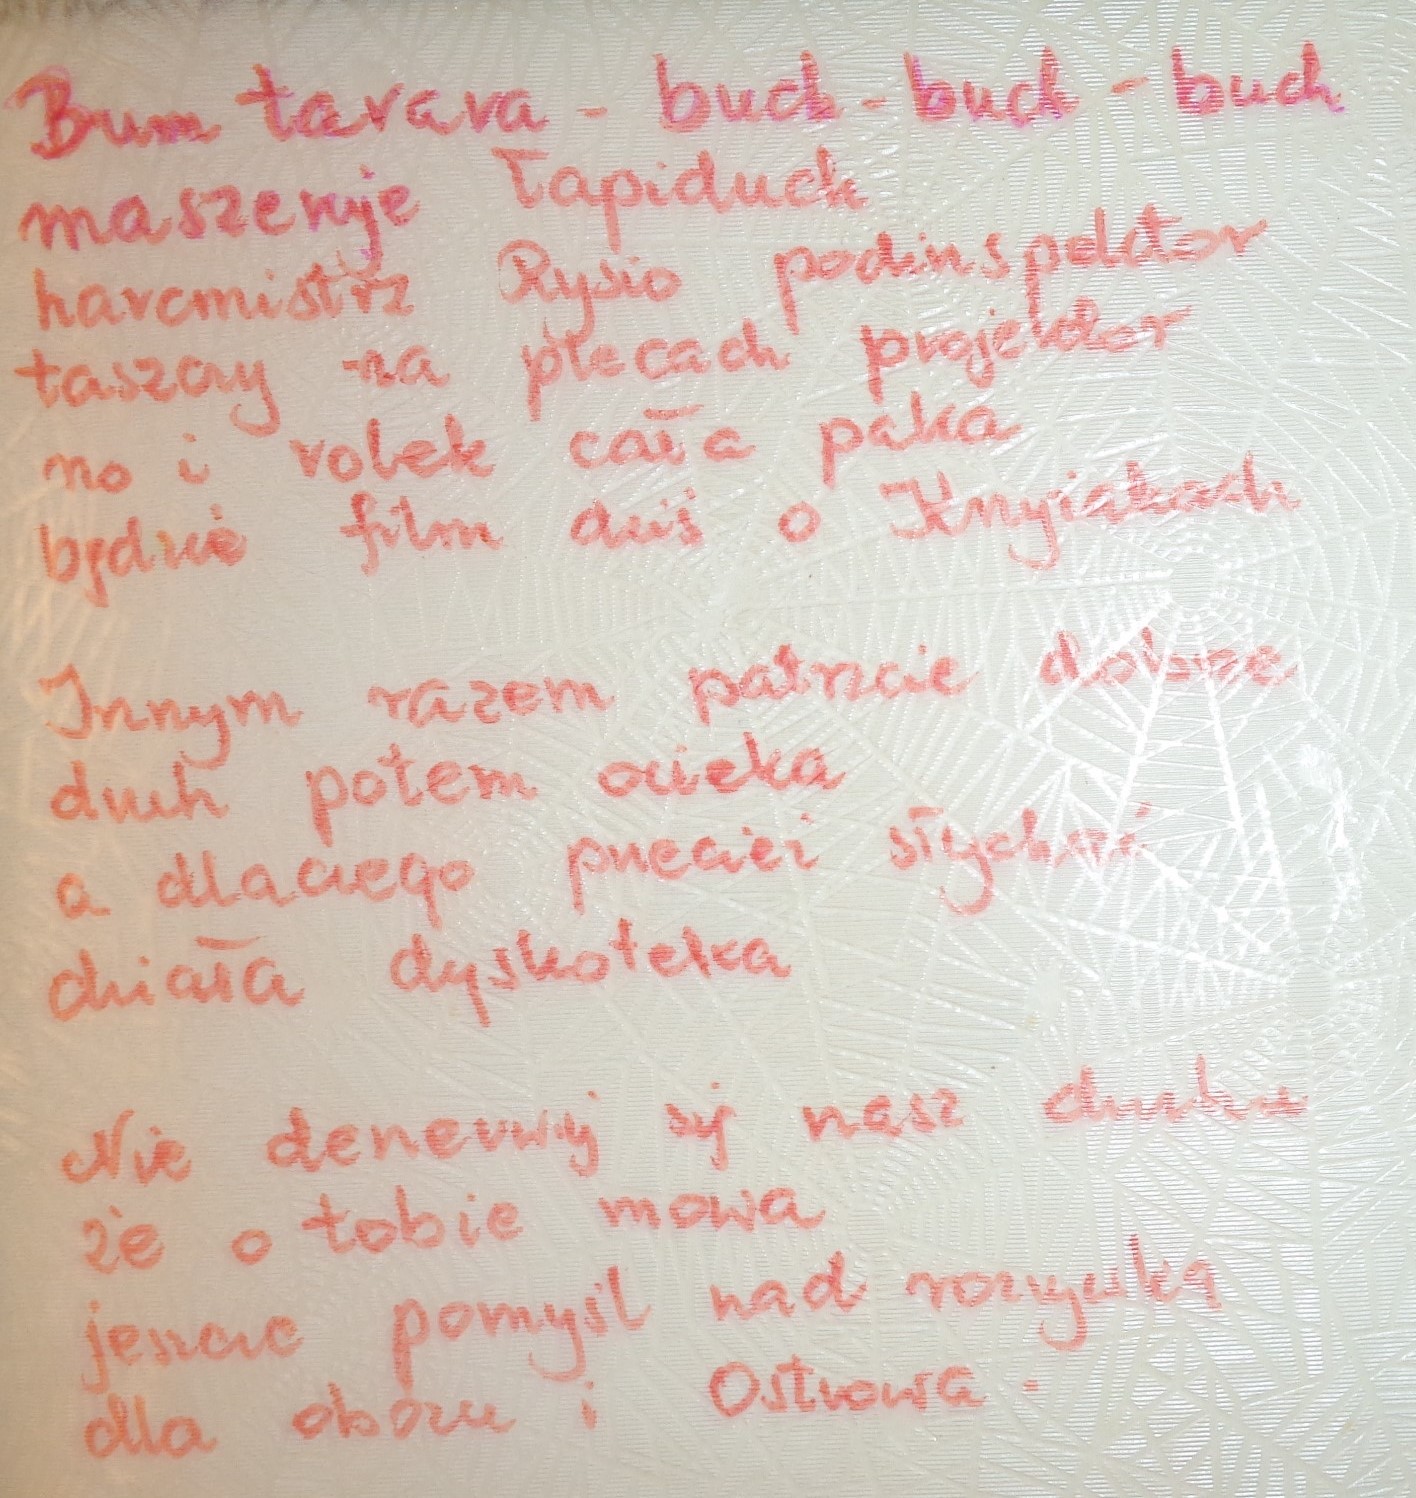 Bum tarara - buch - buch - buch
maszeruje Łapiduch
harcmistrz Rysio podinspektor
taszczy na plecach projektor
no i rolek cała paka
będzie film dziś o Krzyżakach
Innym razem patrzcie dobrze
druh potem ocieka
a dlaczego przecież słychać
działa dyskoteka
Nie denerwuj się nasz druhu
że o tobie mowa
jeszcze pomyśl nad rozrywką
dla obozu i Ostrowa -